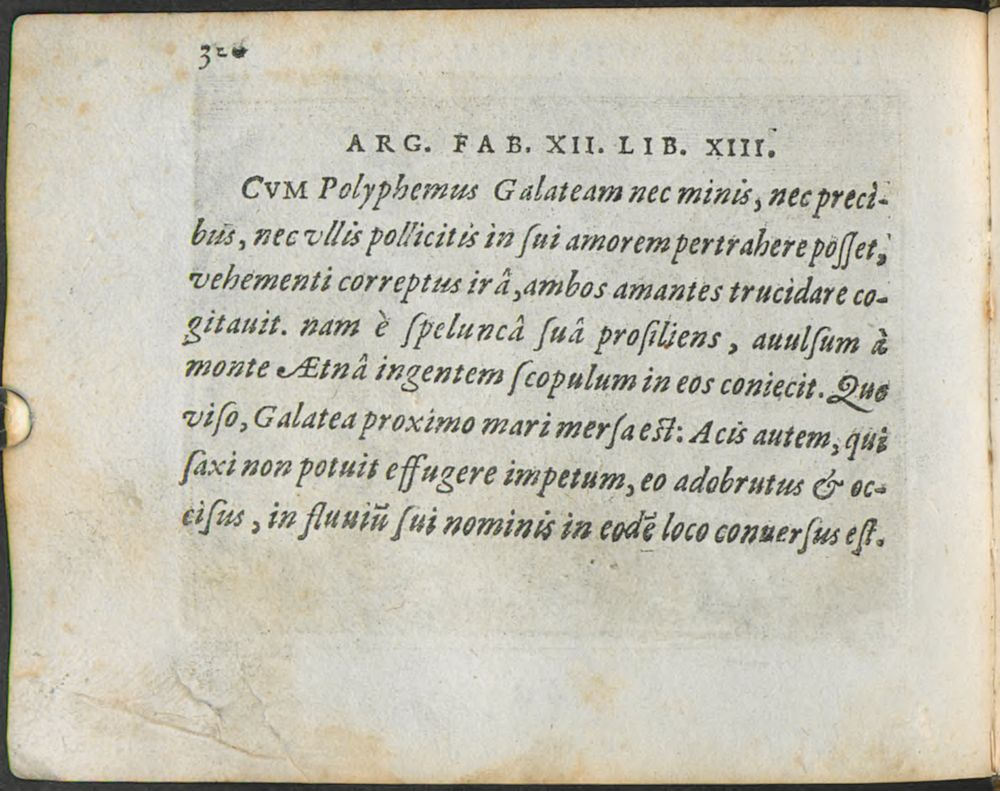 ARG. FAB. XII. LIB. XIII.
CVM Polyphemus Galateam nec minis, nec preci-
bus, nec vllis pollicitis in ſui amorem pertrahere poſſet,
vehementi correptus irâ, ambos amantes trucidare co-
gitauit. nam è ſpeluncâ ſuâ proſiliens, auulſum à
monte Ætnâ ingentem ſcopulum in eos coniecit. Quo
viſo, Galatea proximo mari merſa eſt: Acis autem, qui
ſaxi non potuit effugere impetum, eo adobrutus & oc-
ciſus, in fluuiū ſui nominis in eodē loco conuerſus eſt.